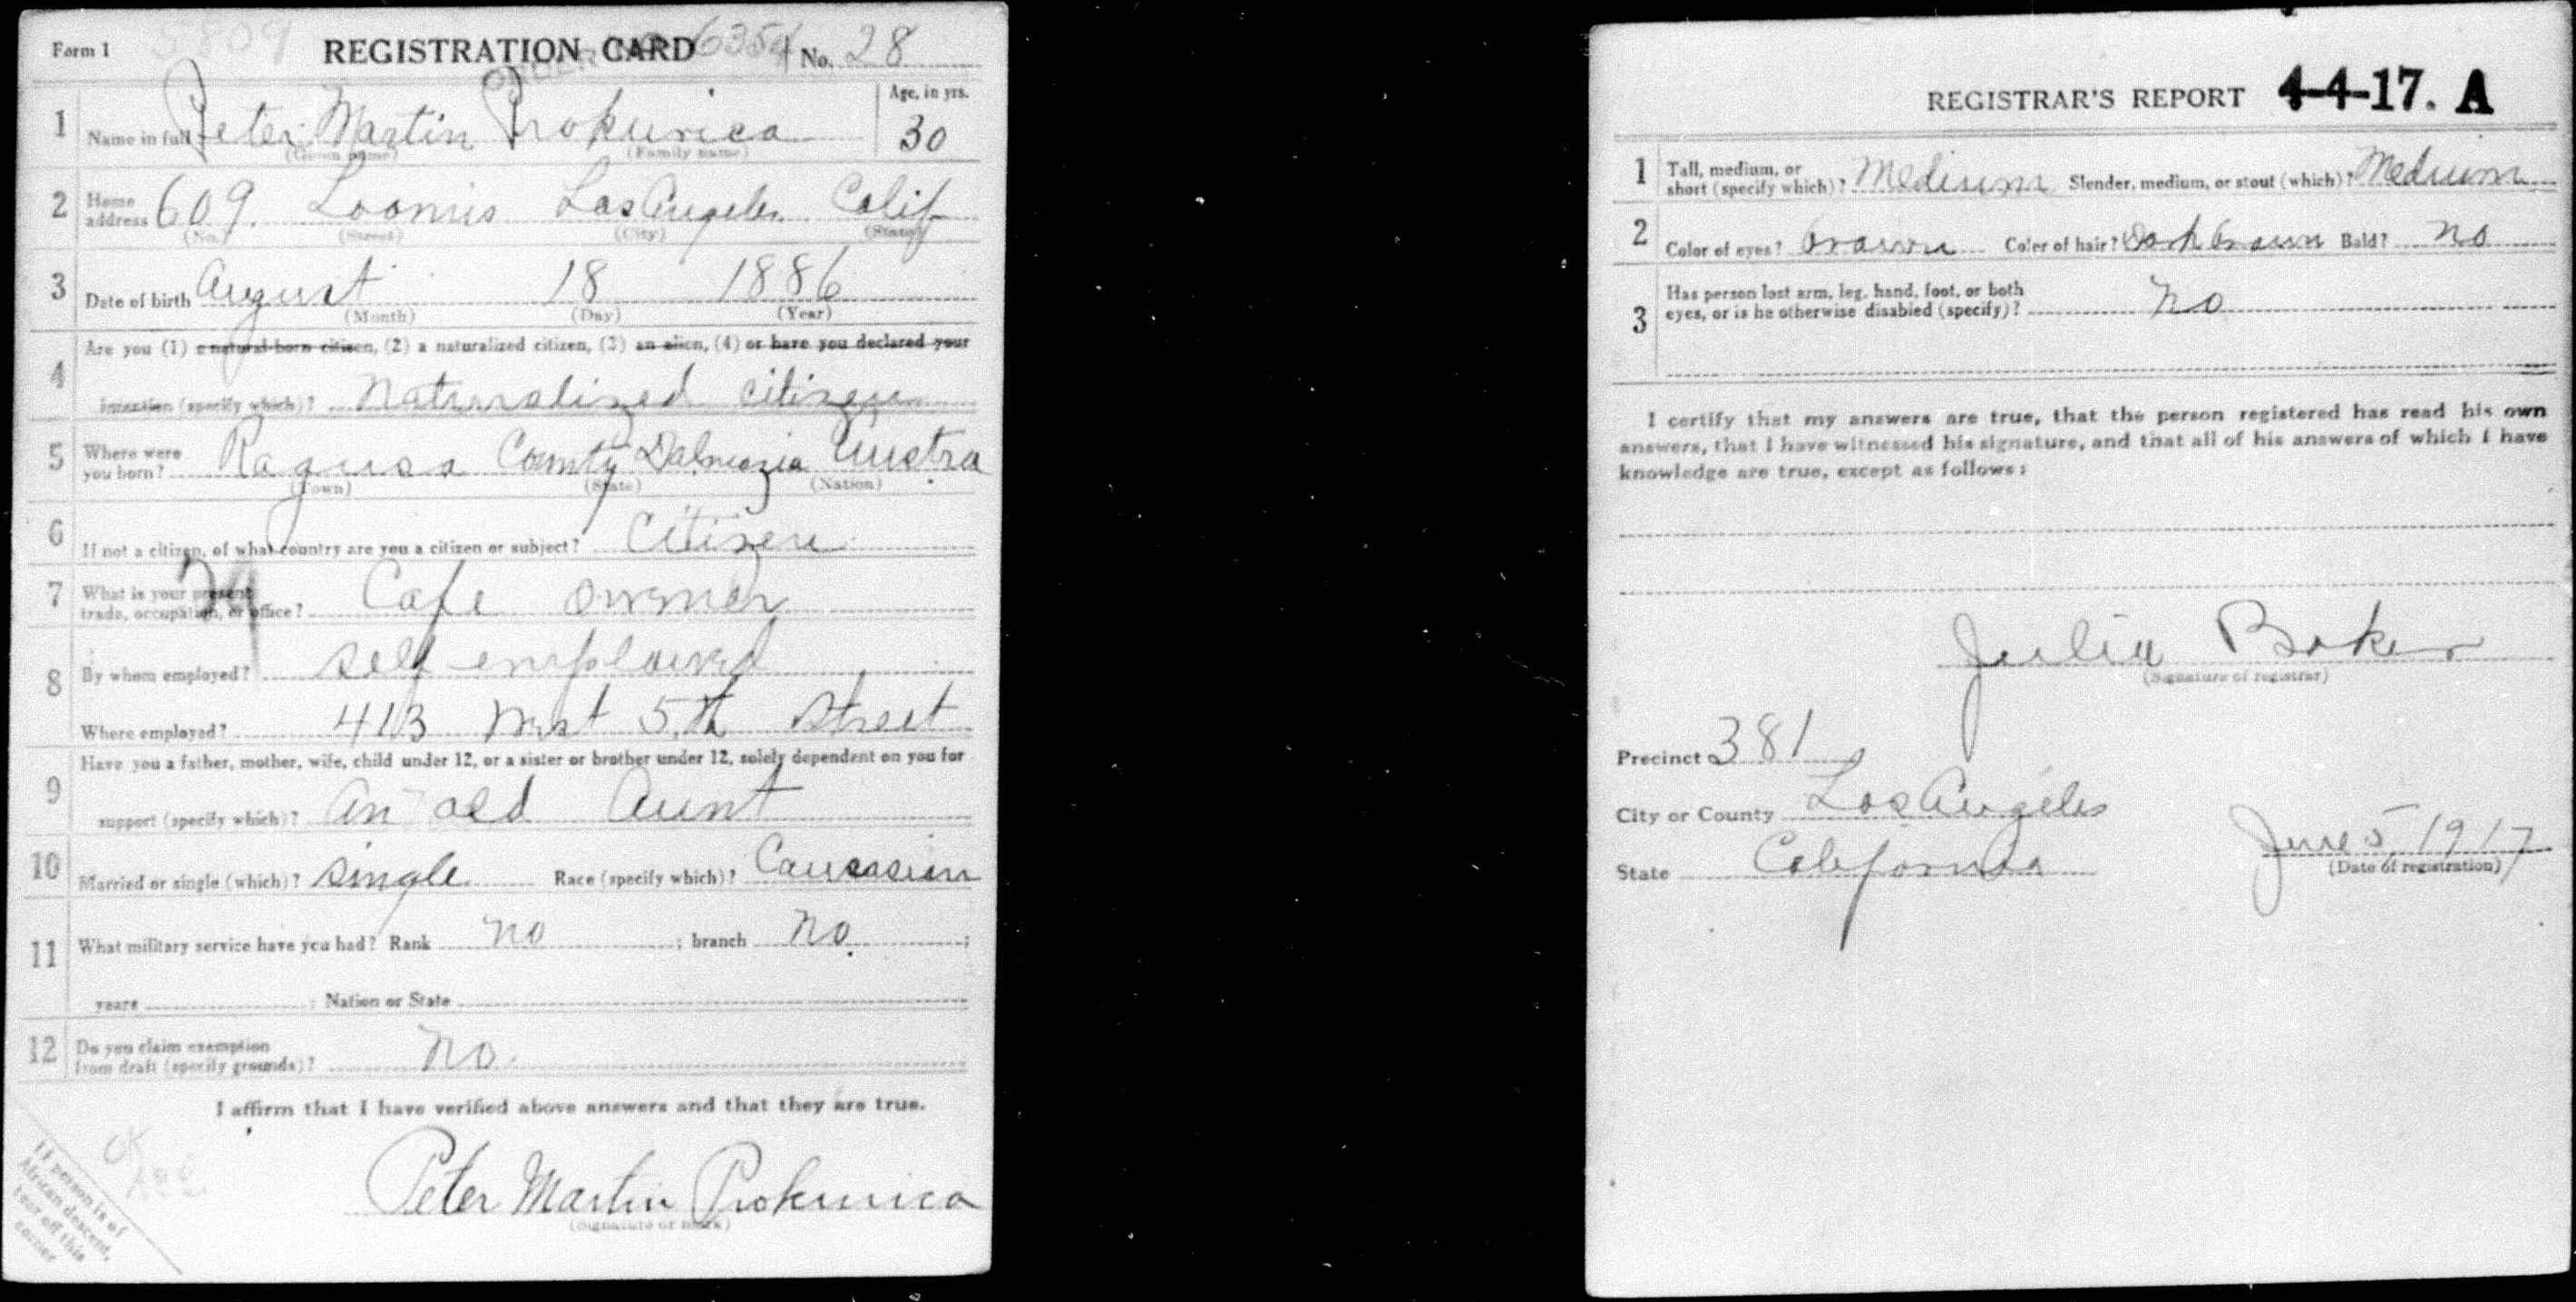 5809
Form 1 REGISTRATION CARD 6354 No. 28
1 Name in full Peter Martin Prokurica Age, in yrs. 30
(Given name) (Family name)
2 Home address 609. Loomis Los Angeles Calif
(No.) (Street) (City) (State)
3 Date of birth August 18 1886
(Month) (Day) (Year)
4 Are you (1) a natural-born citizen, (2) a naturalized citizen, (3) an alien, (4) or have you declared your
intention (specify which)? Naturalized citizen
5 Where were you born? Ragusa County Dalmazia Austra
(Town) (State) (Nation)
6 If not a citizen, of what country are you a citizen or subject? Citizen
7 What is your present trade, occupation, or office? Cafe owner
8 By whom employed? self employed
Where employed? 413 West 5th Street
9 Have you a father, mother, wife, child under 12, or a sister or brother under 12, solely dependent on you for
support (specify which)? An old Aunt
10 Married or single (which)? single Race (specify which)? Caucasian
11 What military service have you had? Rank no ; branch no ;
years ; Nation or State
12 Do you claim exemption from draft (specify grounds)? no.
I affirm that I have verified above answers and that they are true.
Peter Martin Prokurica
(Signature or mark)
If person is of
African descent,
tear off this
corner
REGISTRAR'S REPORT 4-4-17. A
1 Tall, medium, or short (specify which)? Medium Slender, medium, or stout (which)? Medium
2 Color of eyes? brown Color of hair? Dark brown Bald? no
3 Has person lost arm, leg, hand, foot, or both eyes, or is he otherwise disabled (specify)? no
I certify that my answers are true, that the person registered has read his own
answers, that I have witnessed his signature, and that all of his answers of which I have
knowledge are true, except as follows:
Julia Baker
(Signature of registrar)
Precinct 381
City or County Los Angeles
State California June 5, 1917
(Date of registration)